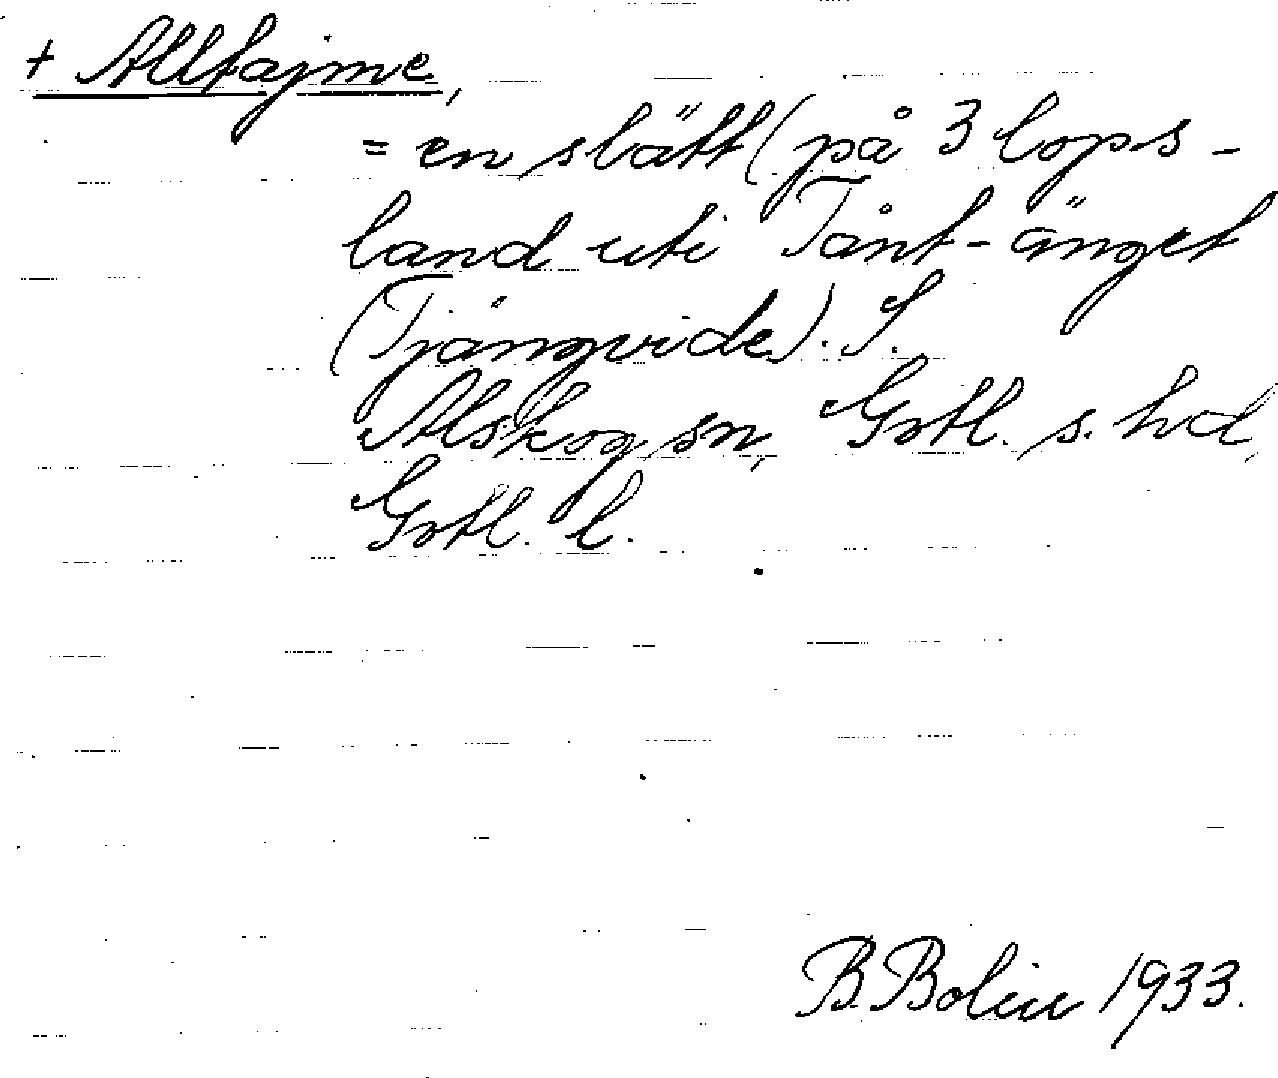 + Alltajme,
= en slätt (på 3 lops-
land uti Tånt-änget
(Tjängvide). S.
Alskog sn, Gotl. s. hd,
Gotl. l.
B. Bolin 1933.